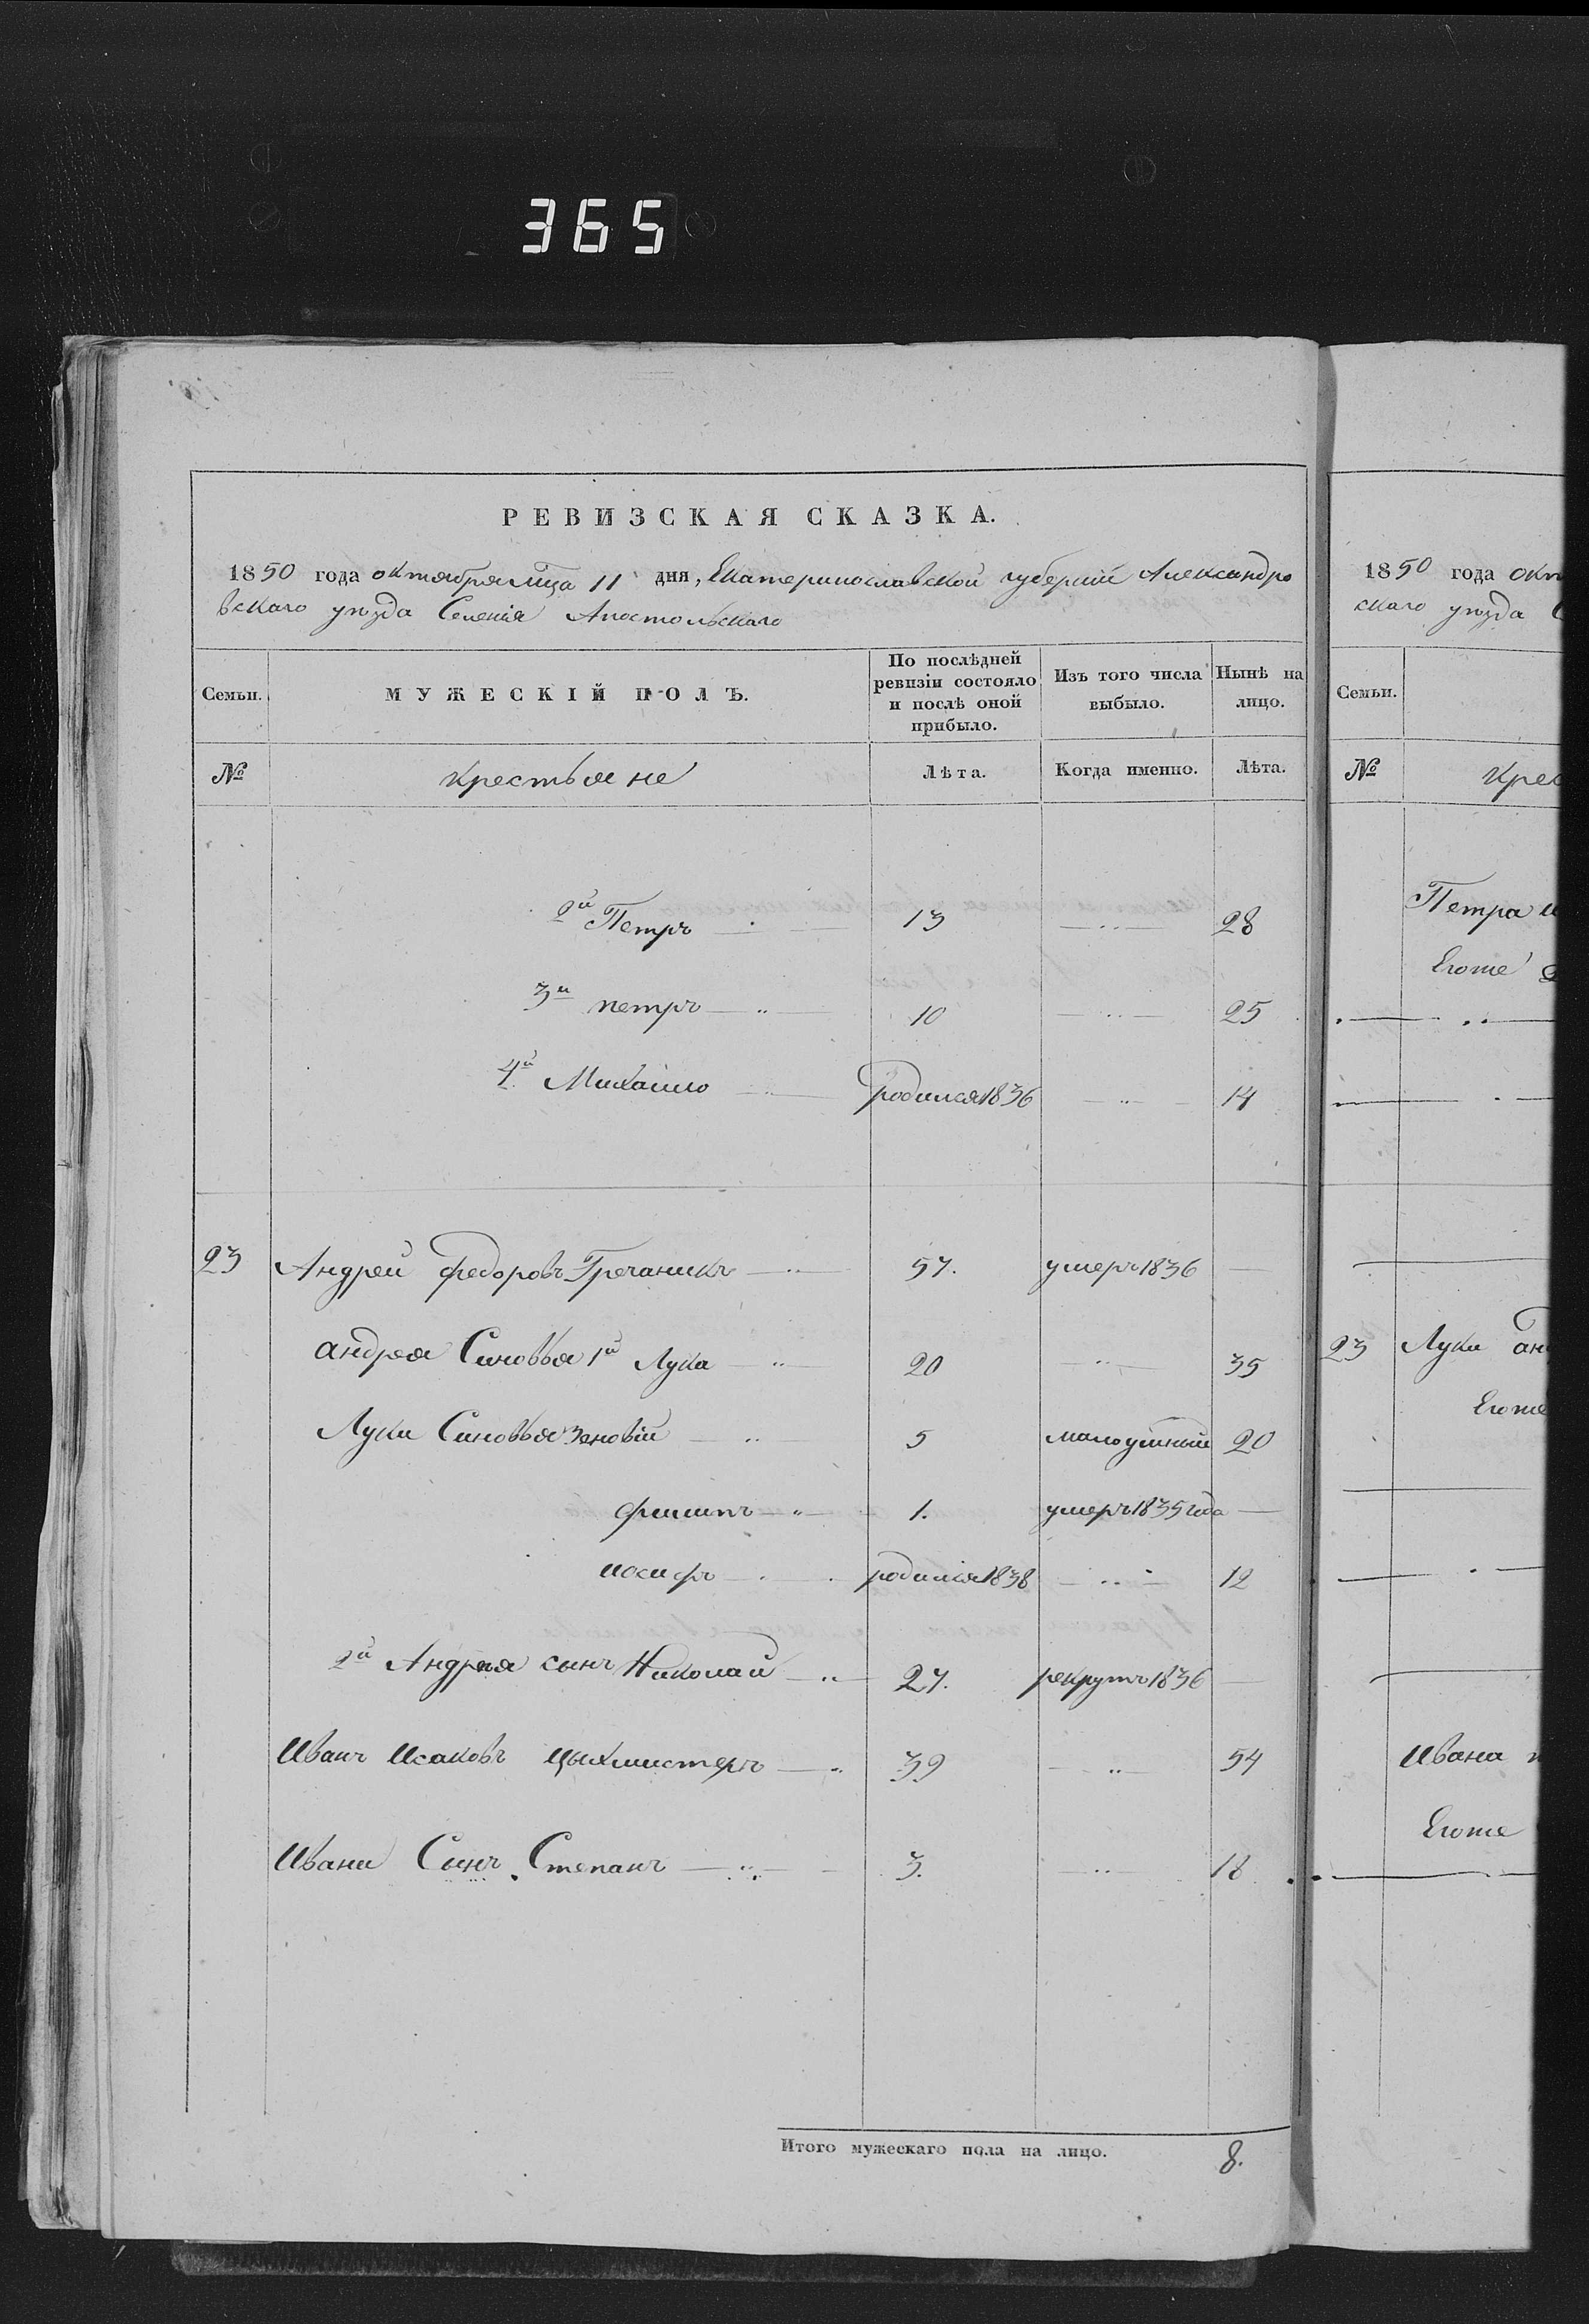 365
РЕВИЗСКАЯ СКАЗКА.
1850 года октября мца 11 дня, Екатеринославской губернии Александро
вскаго уѣзда Селенія Апостольскаго
Семьи.
МУЖЕСКІЙ ПОЛЪ.
По послѣдней ревизіи состояло и послѣ оной прибыло.
Изъ того числа выбыло.
Нынѣ на лицо.
№ крестьяне Лѣта. Когда именно. Лѣта.
2й Петръ 13 28
3й петръ 10 25
4й Михайло родился 1836 14
23 Андрей федоровъ Гречаникъ 57. умеръ 1836
андрея Синовья 1й Лука 20 35
Луки Синовья Зеновій 5 малоумный 20
филипъ 1. умеръ 1835 года
иосифъ родился 1838 12
2й Андрея сынъ Николай 27. рекрутъ 1836
Иванъ Исаковъ Цыхмистеръ 39 54
Ивана Сынъ Степанъ 3. 18
Итого мужескаго пола на лицо. 8.
1850 года окт
скаго уѣзда С
Семьи.
№ Крес
Петра
Егоже
23 Луки ан
Егоже
Ивана
Егоже